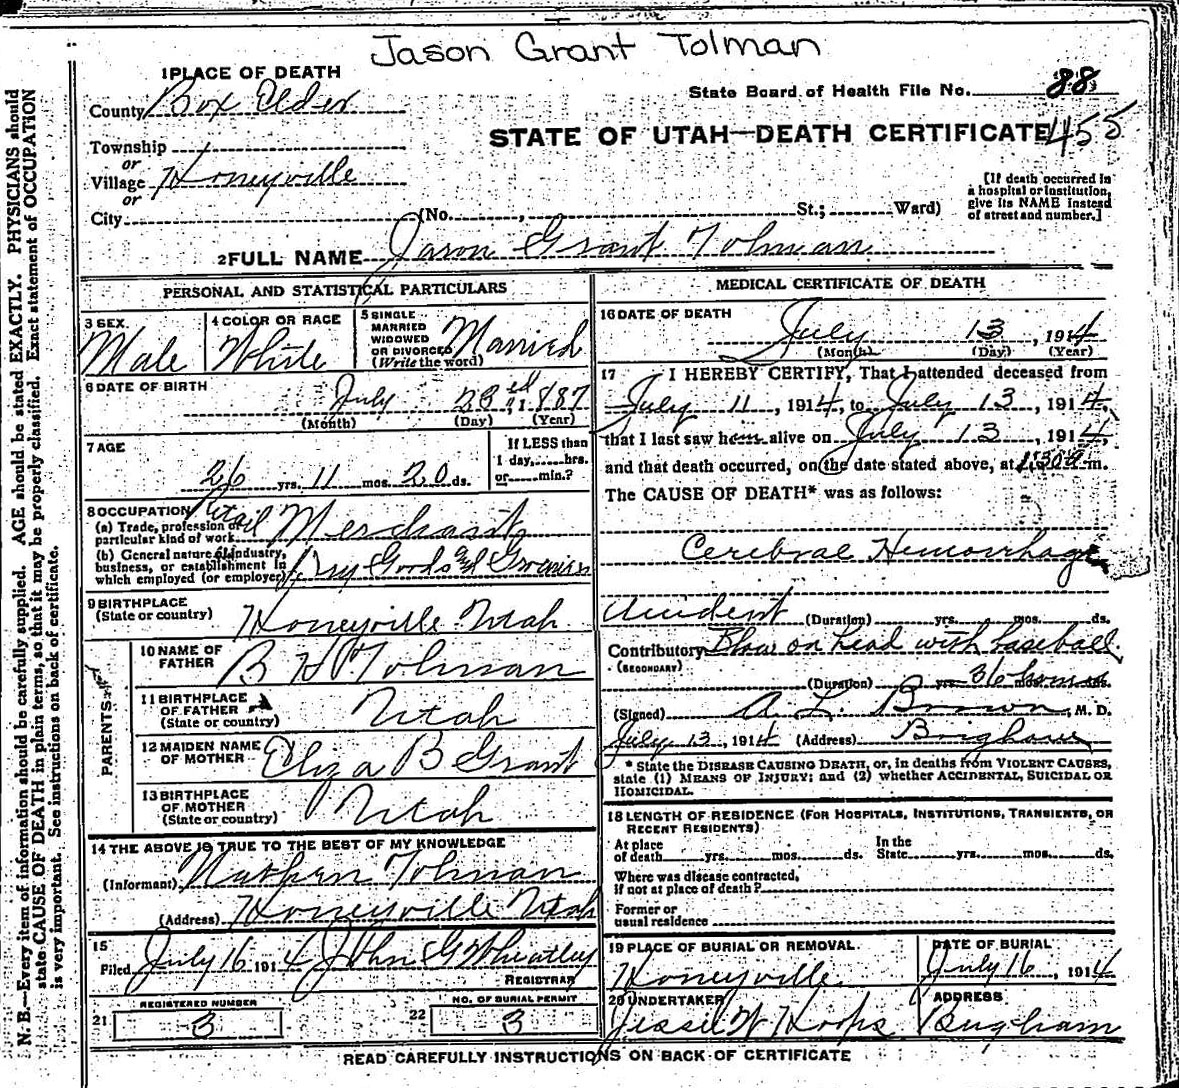 Jason Grant Tolman
1 PLACE OF DEATH
County Box Elder
State Board of Health File No. 88
STATE OF UTAH—DEATH CERTIFICATE 455
Township
or
Village Honeyville
or
City (No. , St.; Ward)
[If death occurred in a hospital or institution, give its NAME instead of street and number.]
2 FULL NAME Jason Grant Tolman
PERSONAL AND STATISTICAL PARTICULARS
3 SEX Male
4 COLOR OR RACE White
5 SINGLE MARRIED WIDOWED OR DIVORCED (Write the word) Married
6 DATE OF BIRTH
July 23 ed, 1887
(Month) (Day) (Year)
7 AGE
26 yrs. 11 mos. 20 ds.
If LESS than 1 day, hrs. or min.?
8 OCCUPATION
(a) Trade, profession or particular kind of work Retail Merchant
(b) General nature of industry, business, or establishment in which employed (or employer) Dry Goods and Groceries
9 BIRTHPLACE
(State or country) Honeyville Utah
PARENTS
10 NAME OF FATHER B H Tolman
11 BIRTHPLACE OF FATHER (State or country) Utah
12 MAIDEN NAME OF MOTHER Eliza B Grant
13 BIRTHPLACE OF MOTHER (State or country) Utah
14 THE ABOVE IS TRUE TO THE BEST OF MY KNOWLEDGE
(Informant) Nathan Tolman
(Address) Honeyville Utah
15
Filed July 16 1914 John G Wheatley
REGISTRAR
REGISTERED NUMBER
21 3
NO. OF BURIAL PERMIT
22 3
MEDICAL CERTIFICATE OF DEATH
16 DATE OF DEATH
July 13, 1914
(Month) (Day) (Year)
17 I HEREBY CERTIFY, That I attended deceased from
July 11, 1914, to July 13, 1914,
that I last saw him alive on July 13, 1914,
and that death occurred, on the date stated above, at 1:30 a m.
The CAUSE OF DEATH* was as follows:
Cerebral Hemorrhage
Accident (Duration) yrs. mos. ds.
Contributory Blow on head with baseball
(SECONDARY)
(Duration) yrs. 36 hours mos. ds.
(Signed) A. L. Brown, M. D.
July 13, 1914 (Address) Brigham
* State the DISEASE CAUSING DEATH, or, in deaths from VIOLENT CAUSES,
state (1) MEANS OF INJURY; and (2) whether ACCIDENTAL, SUICIDAL OR
HOMICIDAL.
18 LENGTH OF RESIDENCE (FOR HOSPITALS, INSTITUTIONS, TRANSIENTS, OR
RECENT RESIDENTS)
At place of death yrs. mos. ds. In the State yrs. mos. ds.
Where was disease contracted,
if not at place of death?
Former or
usual residence
19 PLACE OF BURIAL OR REMOVAL
Honeyville
DATE OF BURIAL
July 16, 1914
20 UNDERTAKER
Jessie W Hoops
ADDRESS
Brigham
READ CAREFULLY INSTRUCTIONS ON BACK OF CERTIFICATE
N. B.—Every item of information should be carefully supplied. AGE should be stated EXACTLY. PHYSICIANS should
state CAUSE OF DEATH in plain terms, so that it may be properly classified. Exact statement of OCCUPATION
is very important. See instructions on back of certificate.